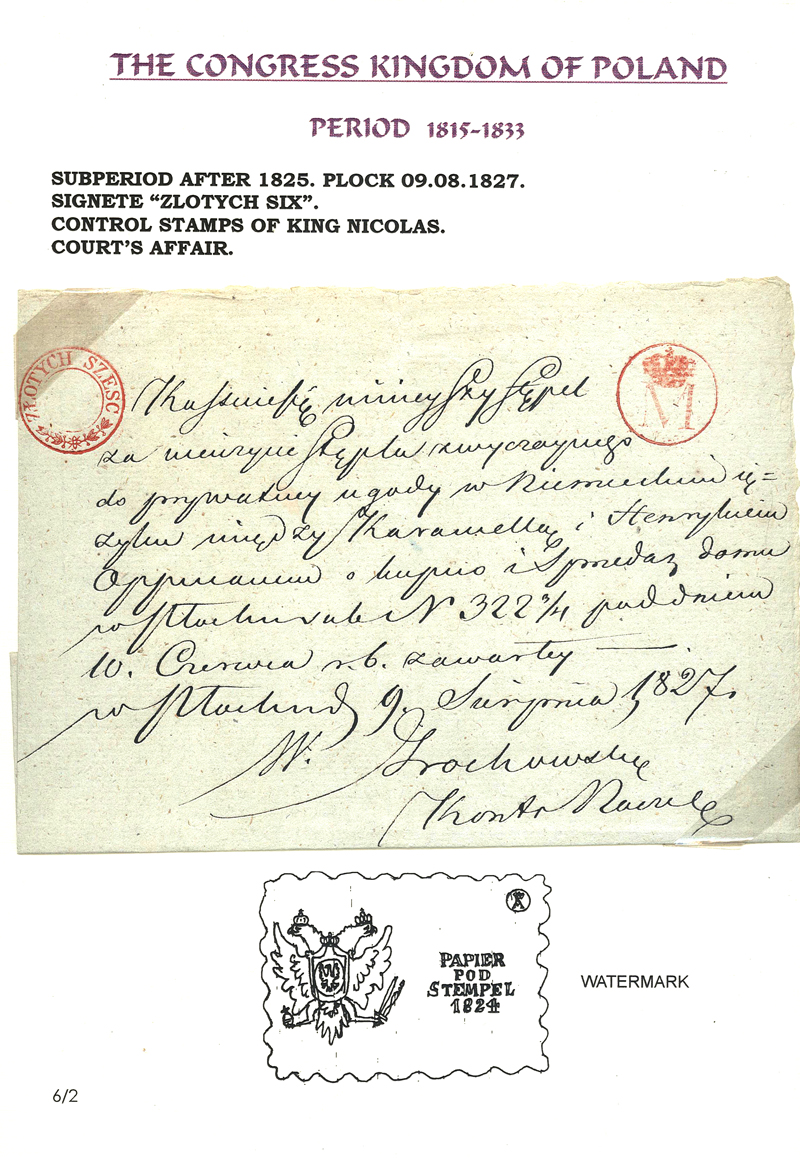 THE CONGRESS KINGDOM OF POLAND
PERIOD 1815-1833
SUBPERIOD AFTER 1825. PLOCK 09.08.1827.
SIGNETE “ZLOTYCH SIX”.
CONTROL STAMPS OF KING NICOLAS.
COURT’S AFFAIR.
ZŁOTYCH SZESC
M
Kassuie się ninieyszy Stępel
za nieużycie Stępla zwyczaynego
do prywatney ugody w Niemieckim ię=
zyku między Karamellą i Henrykiem
Oppmanem o kupno i Sprzedaż domu
w Płocku sub N 322 3/4 pod dniem
10. Czerwca r. b. zawartey
w Płocku d 9. Sierpnia 1827.
W. Grochowski
PAPIER
POD
STEMPEL
1824
WATERMARK
6/2